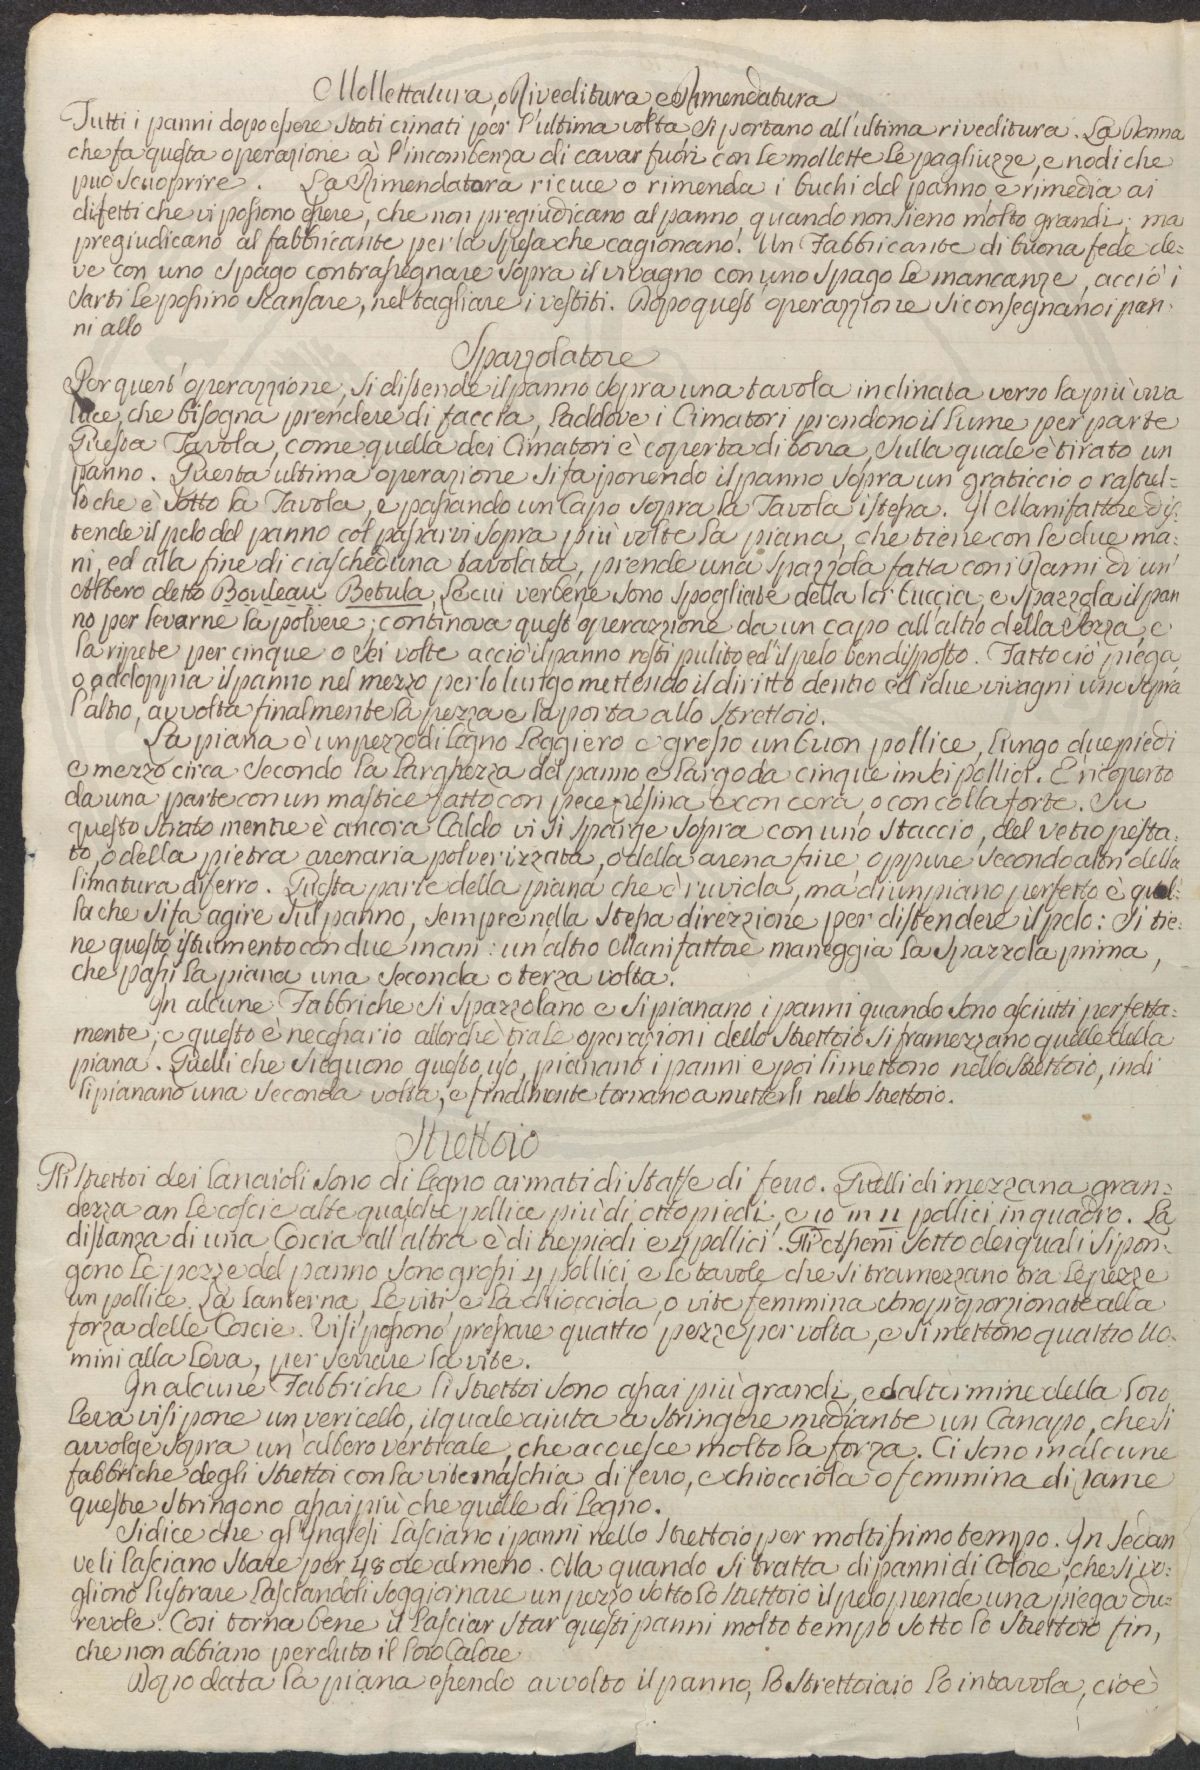 Mollettatura, o Riveditura, e Rimendatura
Tutti i panni dopo essere stati cimati per l'ultima volta si portano all'ultima riveditura. La Donna
che fa questa operazione à l'incombenza di cavar fuori con le mollette le pagliuzze, e nodi che
può scuoprire. La Rimendatora ricuce o rimenda i buchi del panno, e rimedia ai
difetti che vi possono essere, che non pregiudicano al panno, quando non sieno molto grandi; ma
pregiudicano al fabbricante per la spesa che cagionano. Un Fabbricante di buona fede de=
ve con uno spago contrasegnare sopra il vivagno con uno spago le mancanze, acciò i
sarti le possino scansare, nel tagliare i vestiti. Dopo quest operazzione si consegnano i pan-
ni allo
Spazzolatore
Per quest' operazzione, si distende il panno sopra una tavola inclinata verso la più viva
luce, che bisogna prendere di faccia, laddove i Cimatori prendono il lume per parte
Questa Tavola, come quella dei Cimatori è coperta di borra, sulla quale è tirato un
panno. Questa ultima operazione si fa ponendo il panno sopra un graticcio o rastel=
lo che è sotto la Tavola, e passando un Capo sopra la Tavola istessa. Il Manifattore dis=
tende il pelo del panno col passarvi sopra più volte la piana, che tiene con le due ma=
ni, ed alla fine di ciascheduna tavolata, prende una spazzola fatta con i Rami di un'
Albero detto Bouleau Betula, le cui verbene sono spogliate della lor buccia, e spazzola il pan
no per levarne la polvere; continova quest operazzione da un capo all'altro della Pezza, e
la ripete per cinque o sei volte acciò il panno resti pulito ed il pelo ben disposto. Fatto ciò piega,
o addoppia il panno nel mezzo per lo lungo mettendo il diritto dentro ed i due vivagni uno sopra
l'altro, avvolta finalmente la pezza e la porta allo Strettoio.
La piana è un pezzo di legno leggiero e grosso un buon pollice, lungo due piedi
e mezzo circa secondo la larghezza del panno e largo da cinque in sei pollici. È ricoperto
da una parte con un mastice fatto con pece resina e con cera, o con colla forte. Su
questo strato mentre è ancora caldo vi si sparge sopra con uno staccio, del vetro pesta=
to, o della pietra arenaria polverizzata, o della arena fine, oppure secondo altri della
limatura di ferro. Questa parte della piana che è ruvida, ma di un piano perfetto è quel=
la che si fa agire sul panno, sempre nella stessa direzzione per distendere il pelo: Si tie=
ne questo istrumento con due mani: un altro Manifattore maneggia la spazzola prima,
che passi la piana una seconda o terza volta.
In alcune Fabbriche si spazzolano e si pianano i panni quando sono asciutti perfetta=
mente; e questo è necessario allorchè tra le operazioni dello Strettoio si framezzano quelle della
piana. Quelli che sieguono questo uso, pianano i panni e poi li mettono nello Strettoio, indi
li pianano una seconda volta, e finalmente tornano a metterli nello Strettoio.
Strettoio
Gli Strettoi dei Lanaioli sono di legno armati di staffe di ferro. Quelli di mezzana gran=
dezza an le coscie alte qualche pollice più di otto piedi, e 10 in 11 pollici in quadro. La
distanza di una Coscia all'altra è di tre piedi e 4 pollici. Gli assoni sotto dei quali si pon=
gono le pezze del panno sono grossi 4 pollici e le tavole che si tramezzano tra le pezze
un pollice. La lanterna, le viti e la chiocciola, o vite femmina sono proporzionate alla
forza delle Coscie. Vi si possono pressare quattro pezze per volta, e si mettono quattro Uo=
mini alla Leva, per serrare la vite.
In alcune Fabbriche li Strettoi sono assai più grandi, ed al termine della loro
Leva vi si pone un vericello, il quale aiuta a stringere mediante un Canapo, che si
avvolge sopra un' albero verticale, che accresce molto la forza. Ci sono in alcune
fabbriche degli Strettoi con la vite maschia di ferro, e chiocciola o femmina di rame
queste stringono assai più che quelle di legno.
Si dice che gl'Inglesi lasciano i panni nello Strettoio per moltissimo tempo. In Sedan
ve li lasciano stare per 48 ore almeno. Ma quando si tratta di panni di Colore, che si vo=
gliono lustrare lasciandoli soggiornare un pezzo sotto lo Strettoio il pelo prende una piega du=
revole. Così torna bene il lasciar star questi panni molto tempo sotto lo Strettoio fin,
che non abbiano perduto il loro Calore
Dopo data la piana essendo avvolto il panno, lo Strettoiaio lo intavola, cioè